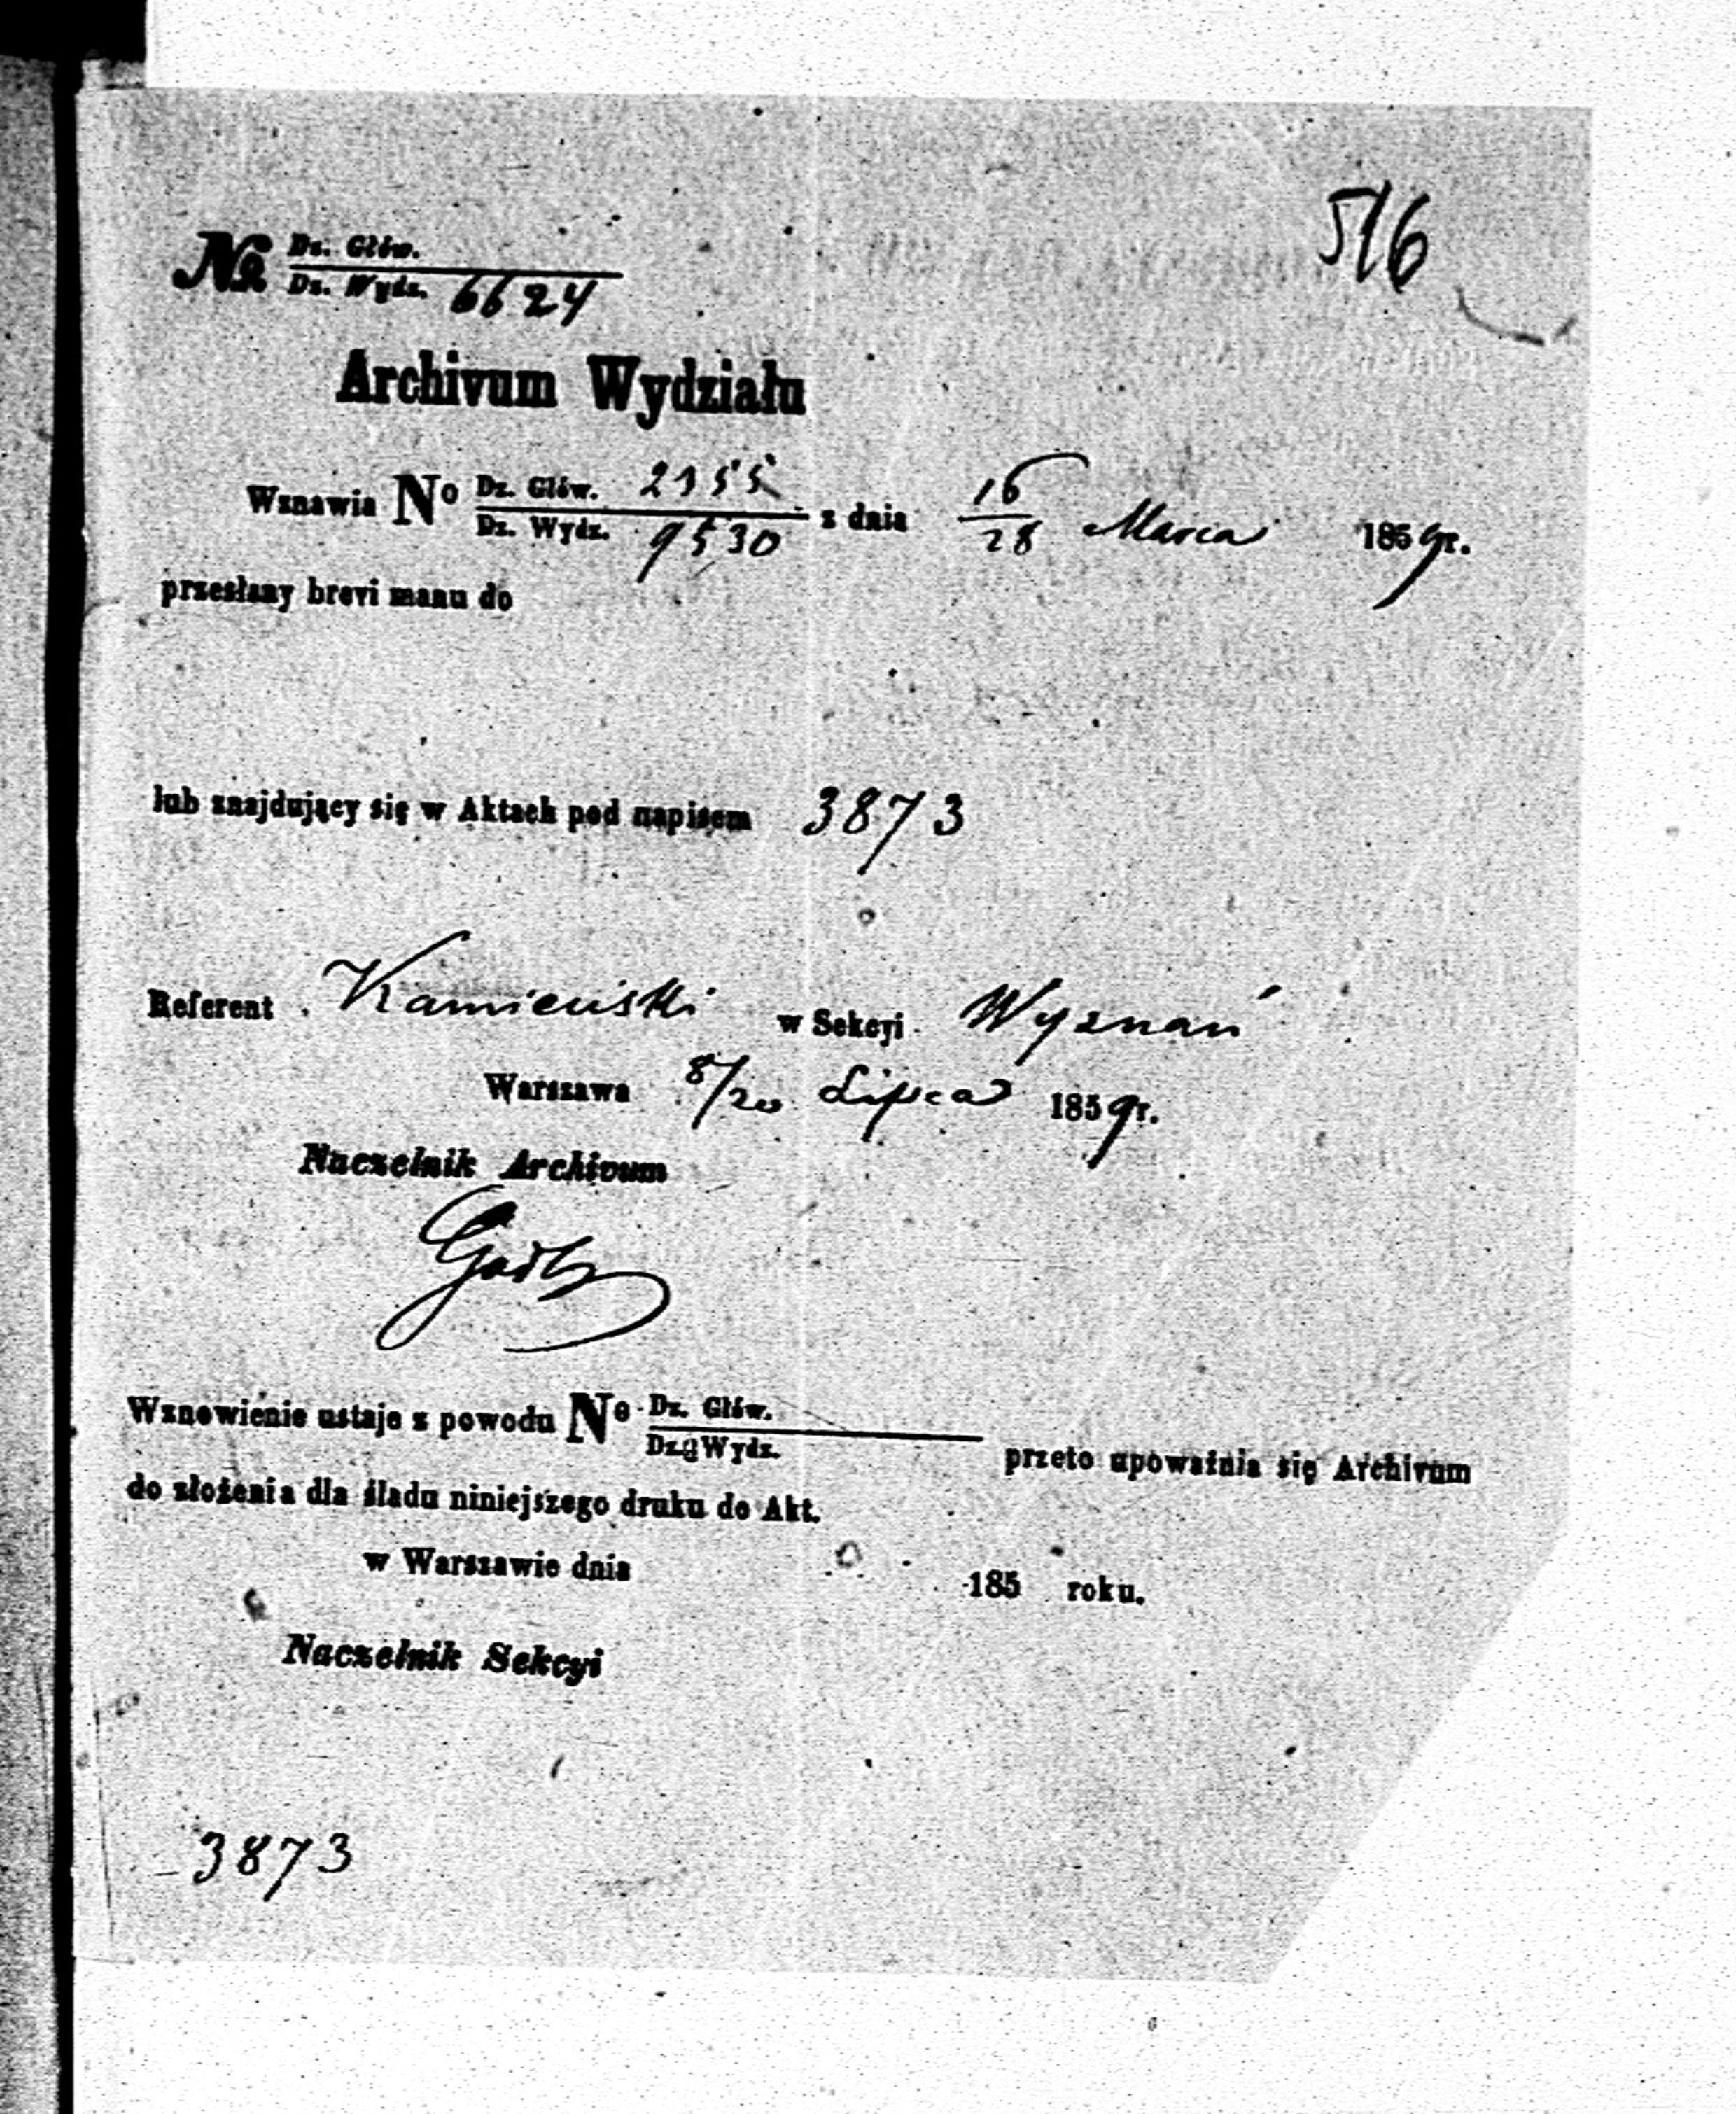 516
№ Dz. Głów.
Dz. Wydz. 6624
Archivum Wydziału
Wznawia No Dz. Głów. 2155 z dnia 16/28 Marca 1859 r.
Dz. Wydz. 9530
przesłany brevi manu do
lub znajdujący się w Aktach pod napisem 3873
Referent Kamieński w Sekcyi Wyznań
Warszawa 8/20 Lipca 1859 r.
Naczelnik Archivum
Wznowienie ustaje z powodu No Dz. Głów. przeto upoważnia się Archivum
Dz. Wydz.
do złożenia dla śladu niniejszego druku do Akt.
w Warszawie dnia 185 roku.
Naczelnik Sekcyi
3873